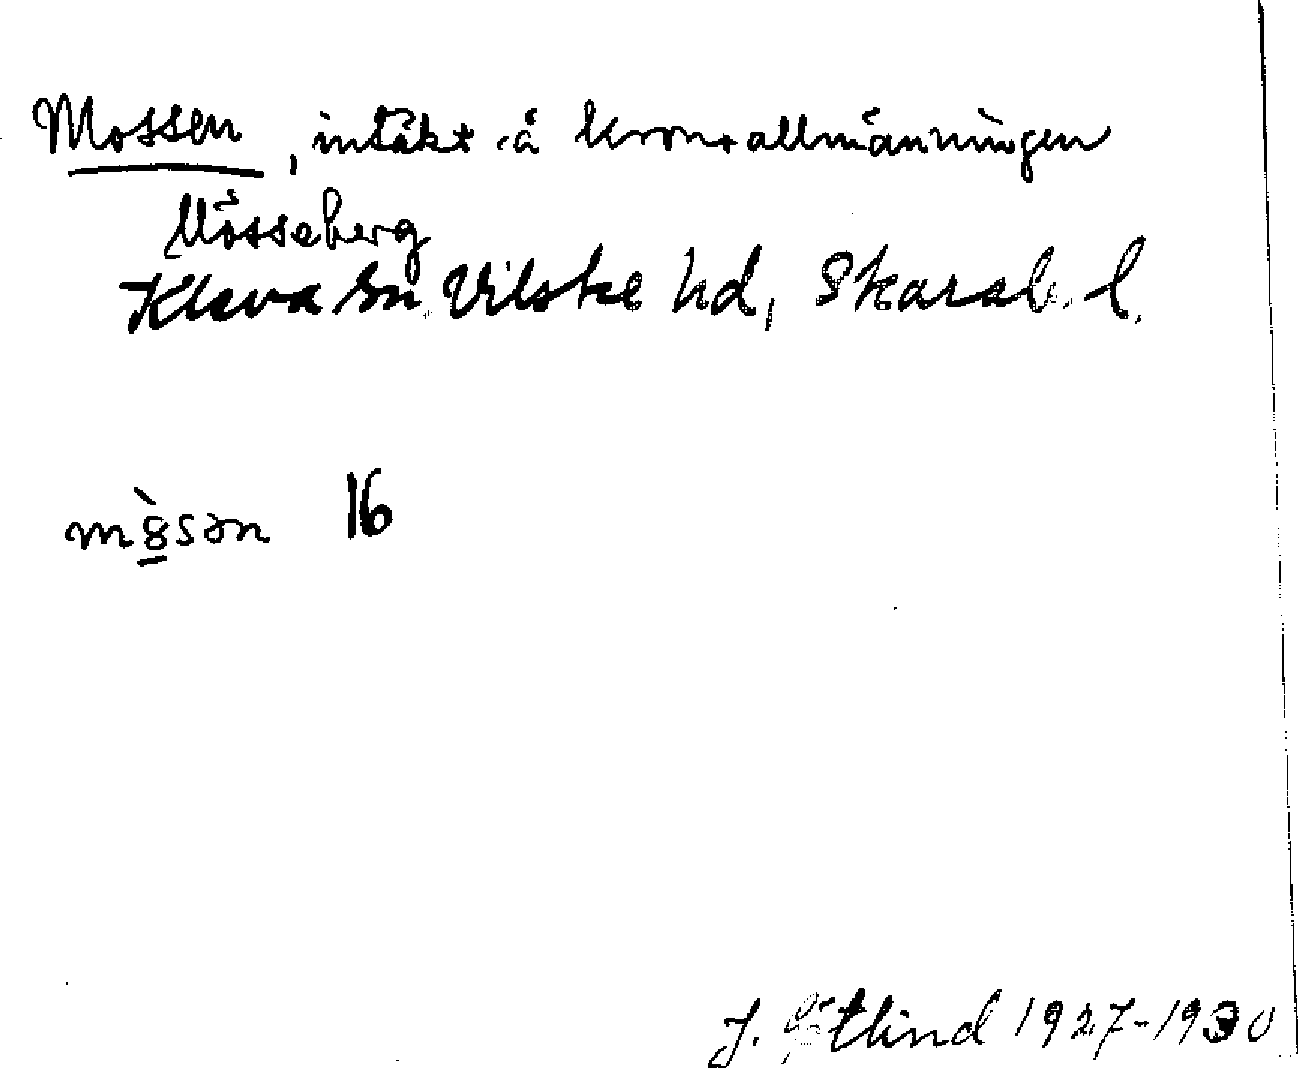 Mossen, intäkt å kronoallmänningen
Mösseberg
Kleva sn. Vilske hd, Skarab. l.
m8̲̀sən 16
J. Götlind 1927-1930